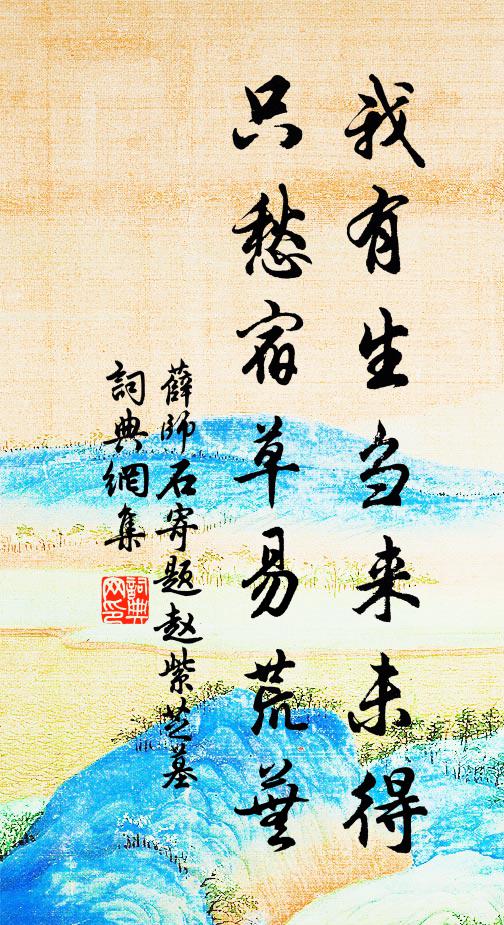 我有生刍来未得
只愁宿草易荒蕪
薛師石寄題赵紫芝墓
詞典網集
詞典网印